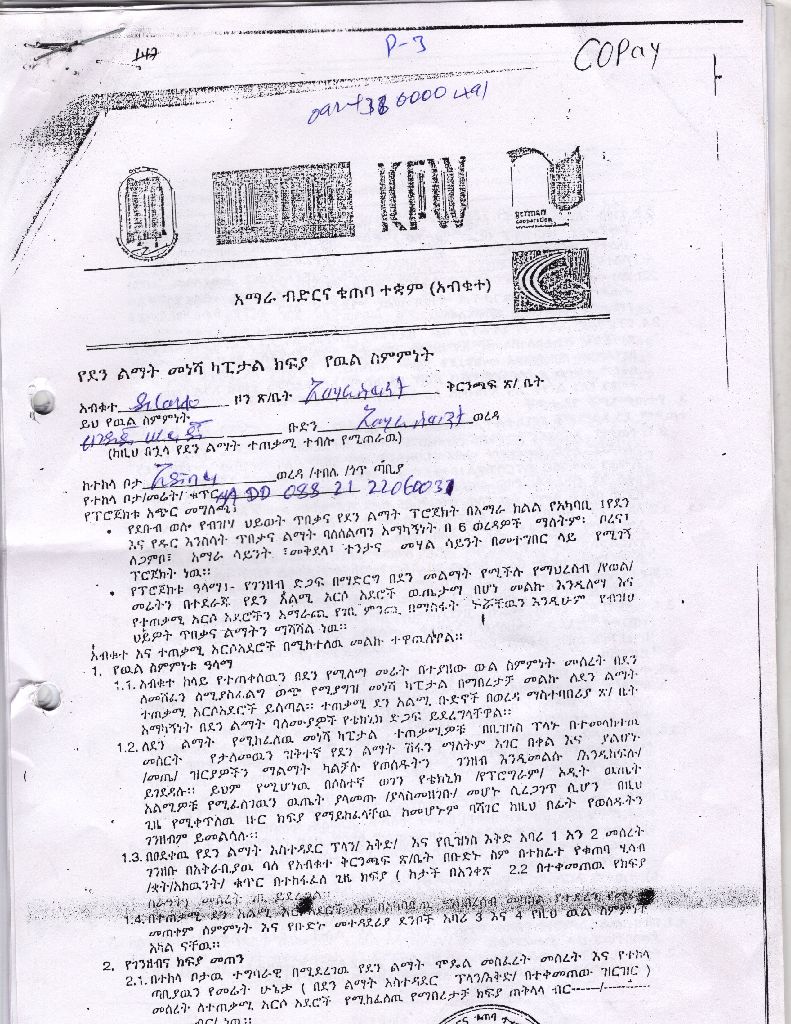 P-3
COPay
KFW
german
cooperation
አማራ ብድርና ቁጠባ ተቋም (አብቁተ)
የደን ልማት መነሻ ካፒታል ክፍያ የዉል ስምምነት
አብቁተ ዞን ጽ/ቤት ቅርንጫፍ ጽ/ ቤት
ይህ የዉል ስምምነት
ቡድን ወረዳ
(ከዚህ በኋላ የደን ልማት ተጠቃሚ ተብሎ የሚጠራዉ)
ከተከላ ቦታ ወረዳ /ቀበሌ /ጎጥ ጣቢያ
የተከላ ቦታ/መሬት/ ቁጥር AA DD 088 21 2206003
የፕሮጀክቱ አጭር መግለጫ፤
• የደቡብ ወሎ የብዝሃ ህይወት ጥበቃና የደን ልማት ፕሮጀክት በአማራ ክልል የአካባቢ ፣የደን
እና የዱር እንስሳት ጥበቃና ልማት ባለስልጣን አማካኝነት በ 6 ወረዳዎች ማለትም፡ ቦረና፣
ለጋምቦ፣ አማራ ሳይንት ፣መቅደላ፣ ተንታና መሃል ሳይንት በመተግበር ላይ የሚገኝ
ፕሮጀክት ነዉ።
• የፕሮጀክቱ ዓላማ፤- የገንዘብ ድጋፍ በማድርግ በደን መልማት የሚችሉ የማህረሰብ /የወል/
መሬትን በተደራጁ የደን አልሚ አርሶ አደሮች ዉጤታማ በሆነ መልኩ እንዲለማ እና
የተጠቃሚ አርሶ አደሮችን አማራጪ የገቢ ምንጪ በማስፋት እንዲሁም የብዝሃ
ህይዎት ጥበቃና ልማትን ማሻሻል ነዉ።
አብቁተ እና ተጠቃሚ አርሶአደሮች በሚከተለዉ መልኩ ተዋዉለዋል።
1. የዉል ስምምነቱ ዓላማ
1.1. አብቁተ ከላይ የተጠቀሰዉን በደን የሚለማ መሬት በተያዘው ውል ስምምነት መሰረት በደን
ለመሸፈን ለሚያስፈልግ ወጭ የሚያግዝ መነሻ ካፒታል በማበረታቻ መልኩ ለደን ልማት
ተጠቃሚ አርሶአደሮች ይሰጣል። ተጠቃሚ ደን አልሚ ቡድኖች በወረዳ ማስተባበሪያ ጽ/ ቤት
አማካኝነት በደን ልማት ባለሙያዎች የቴክኒክ ድጋፍ ይደረግላቸዋል።
1.2. ለደን ልማት የሚከፈለዉ መነሻ ካፒታል ተጠቃሚዎቹ በቢዝነስ ፕላኑ በተመለከተዉ
መሰርት የታለመዉን ዝቅተኛ የደን ልማት ሽፋን ማለትም አገር በቀል እና ያልሆኑ
/መጤ/ ዝርያዎችን ማልማት ካልቻሉ የወሰዱትን ገንዘብ እንዲመልሱ /እንዲከፍሉ/
ይገደዳሉ። ይህም የሚሆነዉ በሶስተኛ ወገን የቴክኒክ /የፕሮግራም/ ኦዲት ዉጤት
አልሚዎቹ የሚፈለገዉን ዉጤት ያላመጡ /ያላስመዘገቡ/ መሆኑ ሲረጋገጥ ሲሆን በዚህ
ጊዜ የሚቀጥለዉ ዙር ክፍያ የማይከፈላቸዉ ከመሆኑም ባሻገር ከዚህ በፊት የወሰዱትን
ገንዘብም ይመልሳሉ።
1.3. በፀደቀዉ የደን ልማት አስተዳደር ፕላን/ እቅድ/ እና የቢዝነስ እቅድ አባሪ 1 እን 2 መሰረት
ገንዘቡ በአቅራቢያዉ ባለ የአብቁተ ቅርንጫፍ ጽ/ቤት በቡድኑ ስም በተከፈተ የቁጠባ ሂሳብ
/ቋት/አካዉንት/ ቁጥር በተከፋፈለ ጊዜ ክፍያ ( ከታች በአንቀጽ 2.2 በተቀመጠዉ የክፍያ
መሰረት
1.4. በተጠቃሚ ደን አልሚ አርሶአደሮች እና
መጠቀም ስምምነት እና የቡድኑ መተዳደሪያ ደንቦች አባሪ 3 እና 4 የዚህ ዉል ስምምነት
አካል ናቸዉ።
2. የገንዘብና ክፍያ መጠን
2.1. በተከላ ቦታዉ ተግባራዊ በሚደረገዉ የደን ልማት ሞዴል መስፈረት መሰረት እና የተከላ
ጣቢያዉን የመሬት ሁኔታ ( በደን ልማት አስተዳደር ፕላን/እቅድ/ በተቀመጠው ዝርዝር )
መሰረት ለተጠቃሚ አርሶ አደሮች የሚከፈለዉ የማበረታቻ ክፍያ ጠቅላላ ብር------/---------
ብር/ ነዉ ።